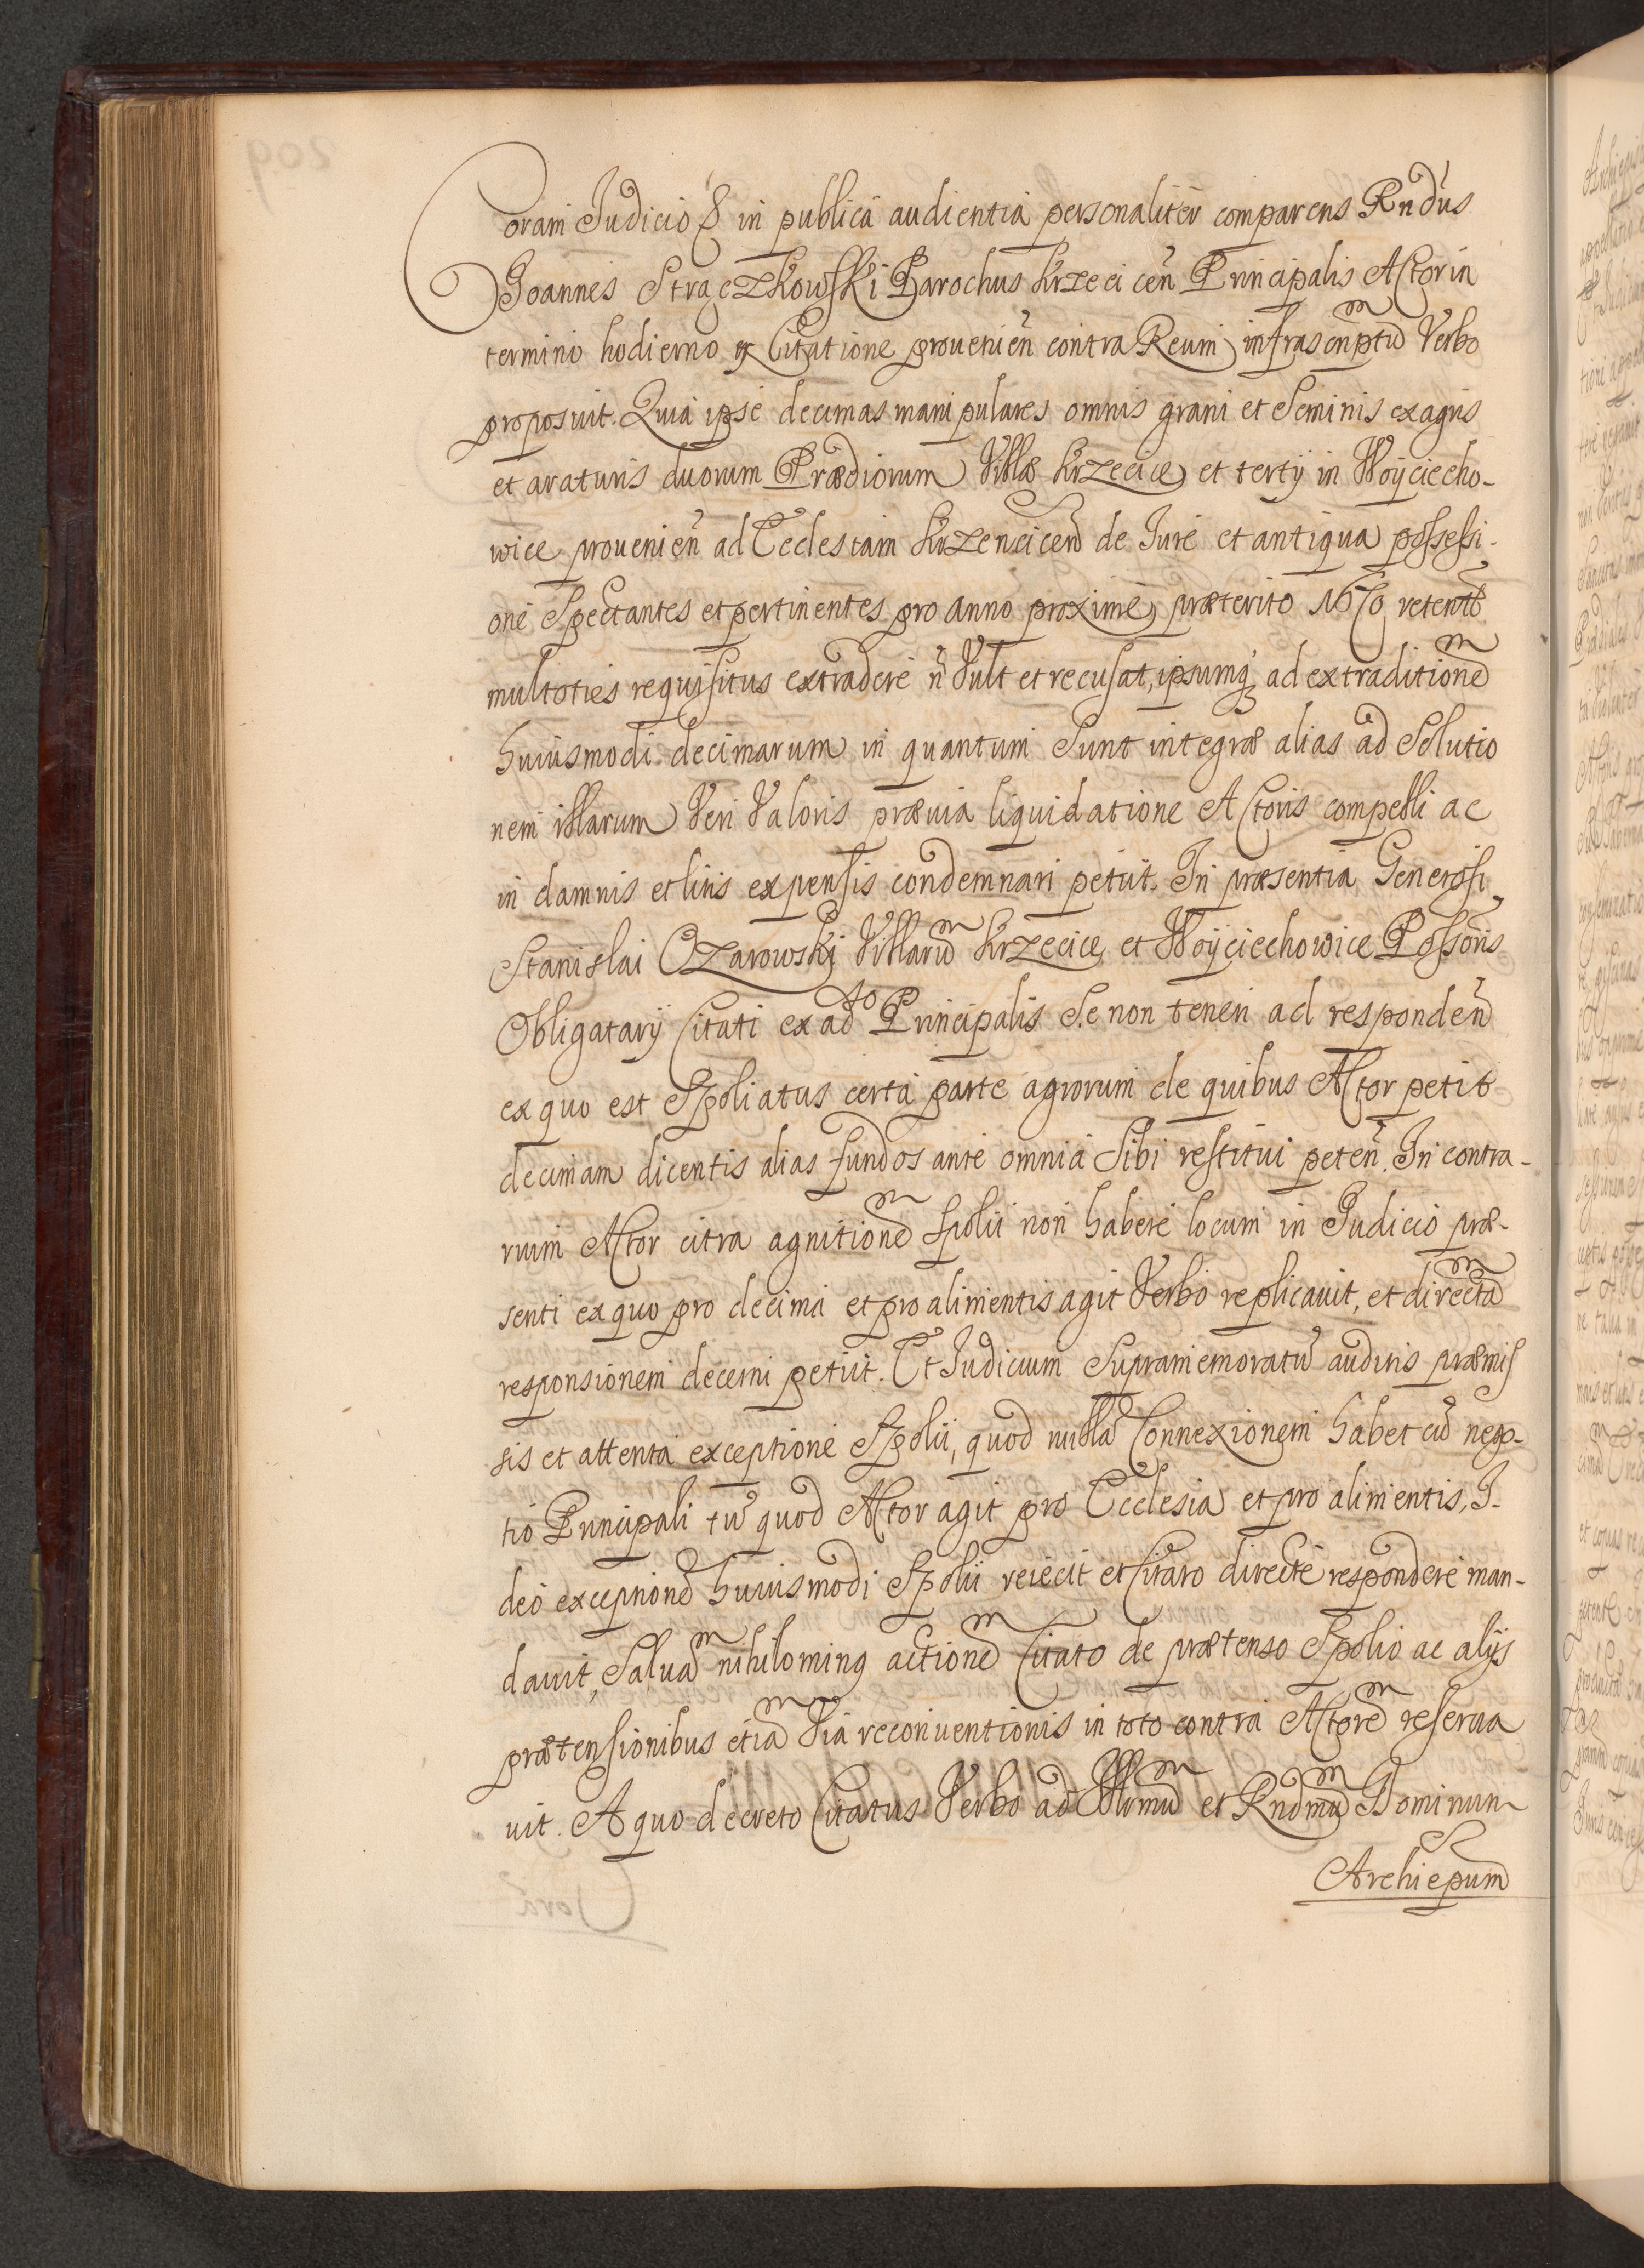 Coram Judicio & in publica audientia personaliter comparens Rndus
Joannes Strączkowski Parochus Krzecicen Principalis Actor in
termino hodierno ex Citatione prouenien contra Reum infrascriptū Verbo
proposuit. Quia ipse decimas manipulares omnis grani et Seminis ex agris
et araturis duorum Prædiorum Villæ Krzecice et tertij in Woyciecho-
wice prouenien ad Ecclesiam Krzencicen de Jure et antiqua possessi-
one Spectantes et pertinentes pro anno proxime præterito 1670 retent
multoties requisitus extradere n̄ Vult et recusat, ipsumq ad extraditionē
huiusmodi decimarum in quantum Sunt integræ alias ad Solutio
nem illarum Veri Valoris præuia liquidatione Actoris compelli ac
in damnis et litis expensis condemnari petiit. In præsentia Generosi
Stanislai Ozarowskj Villarū Krzecice et Woyciechowice Possoris
Obligatarij Citati ex adto Principalis Se non teneri ad responden
ex quo est Spoliatus certa parte agrorum de quibus Actor petit
decimam dicentis alias fundos ante omnia Sibi restitui peten. In contra-
rium Actor citra agnitionē spolii non habere locum in Judicio præ-
senti ex quo pro decima et pro alimentis agit Verbo replicauit, et directā
responsionem decerni petiit. Et Judicium Supramemoratū auditis præmis
sis et attenta exceptione Spolii, quod nullā Connexionem habet cū nego-
tio Principali tū quod Actor agit pro Ecclesia et pro alimentis, I-
deo exceptionē huiusmodi Spolii reiecit et Citato directe respondere man-
dauit, Saluā nihilominq actionē Citato de prætenso Spolio ac alijs
prætensionibus etiā Via reconuentionis in toto contra Actorē reserua
uit. A quo decreto Citatus Verbo ad Illrmū et Rndmū Dominum
Archiepum